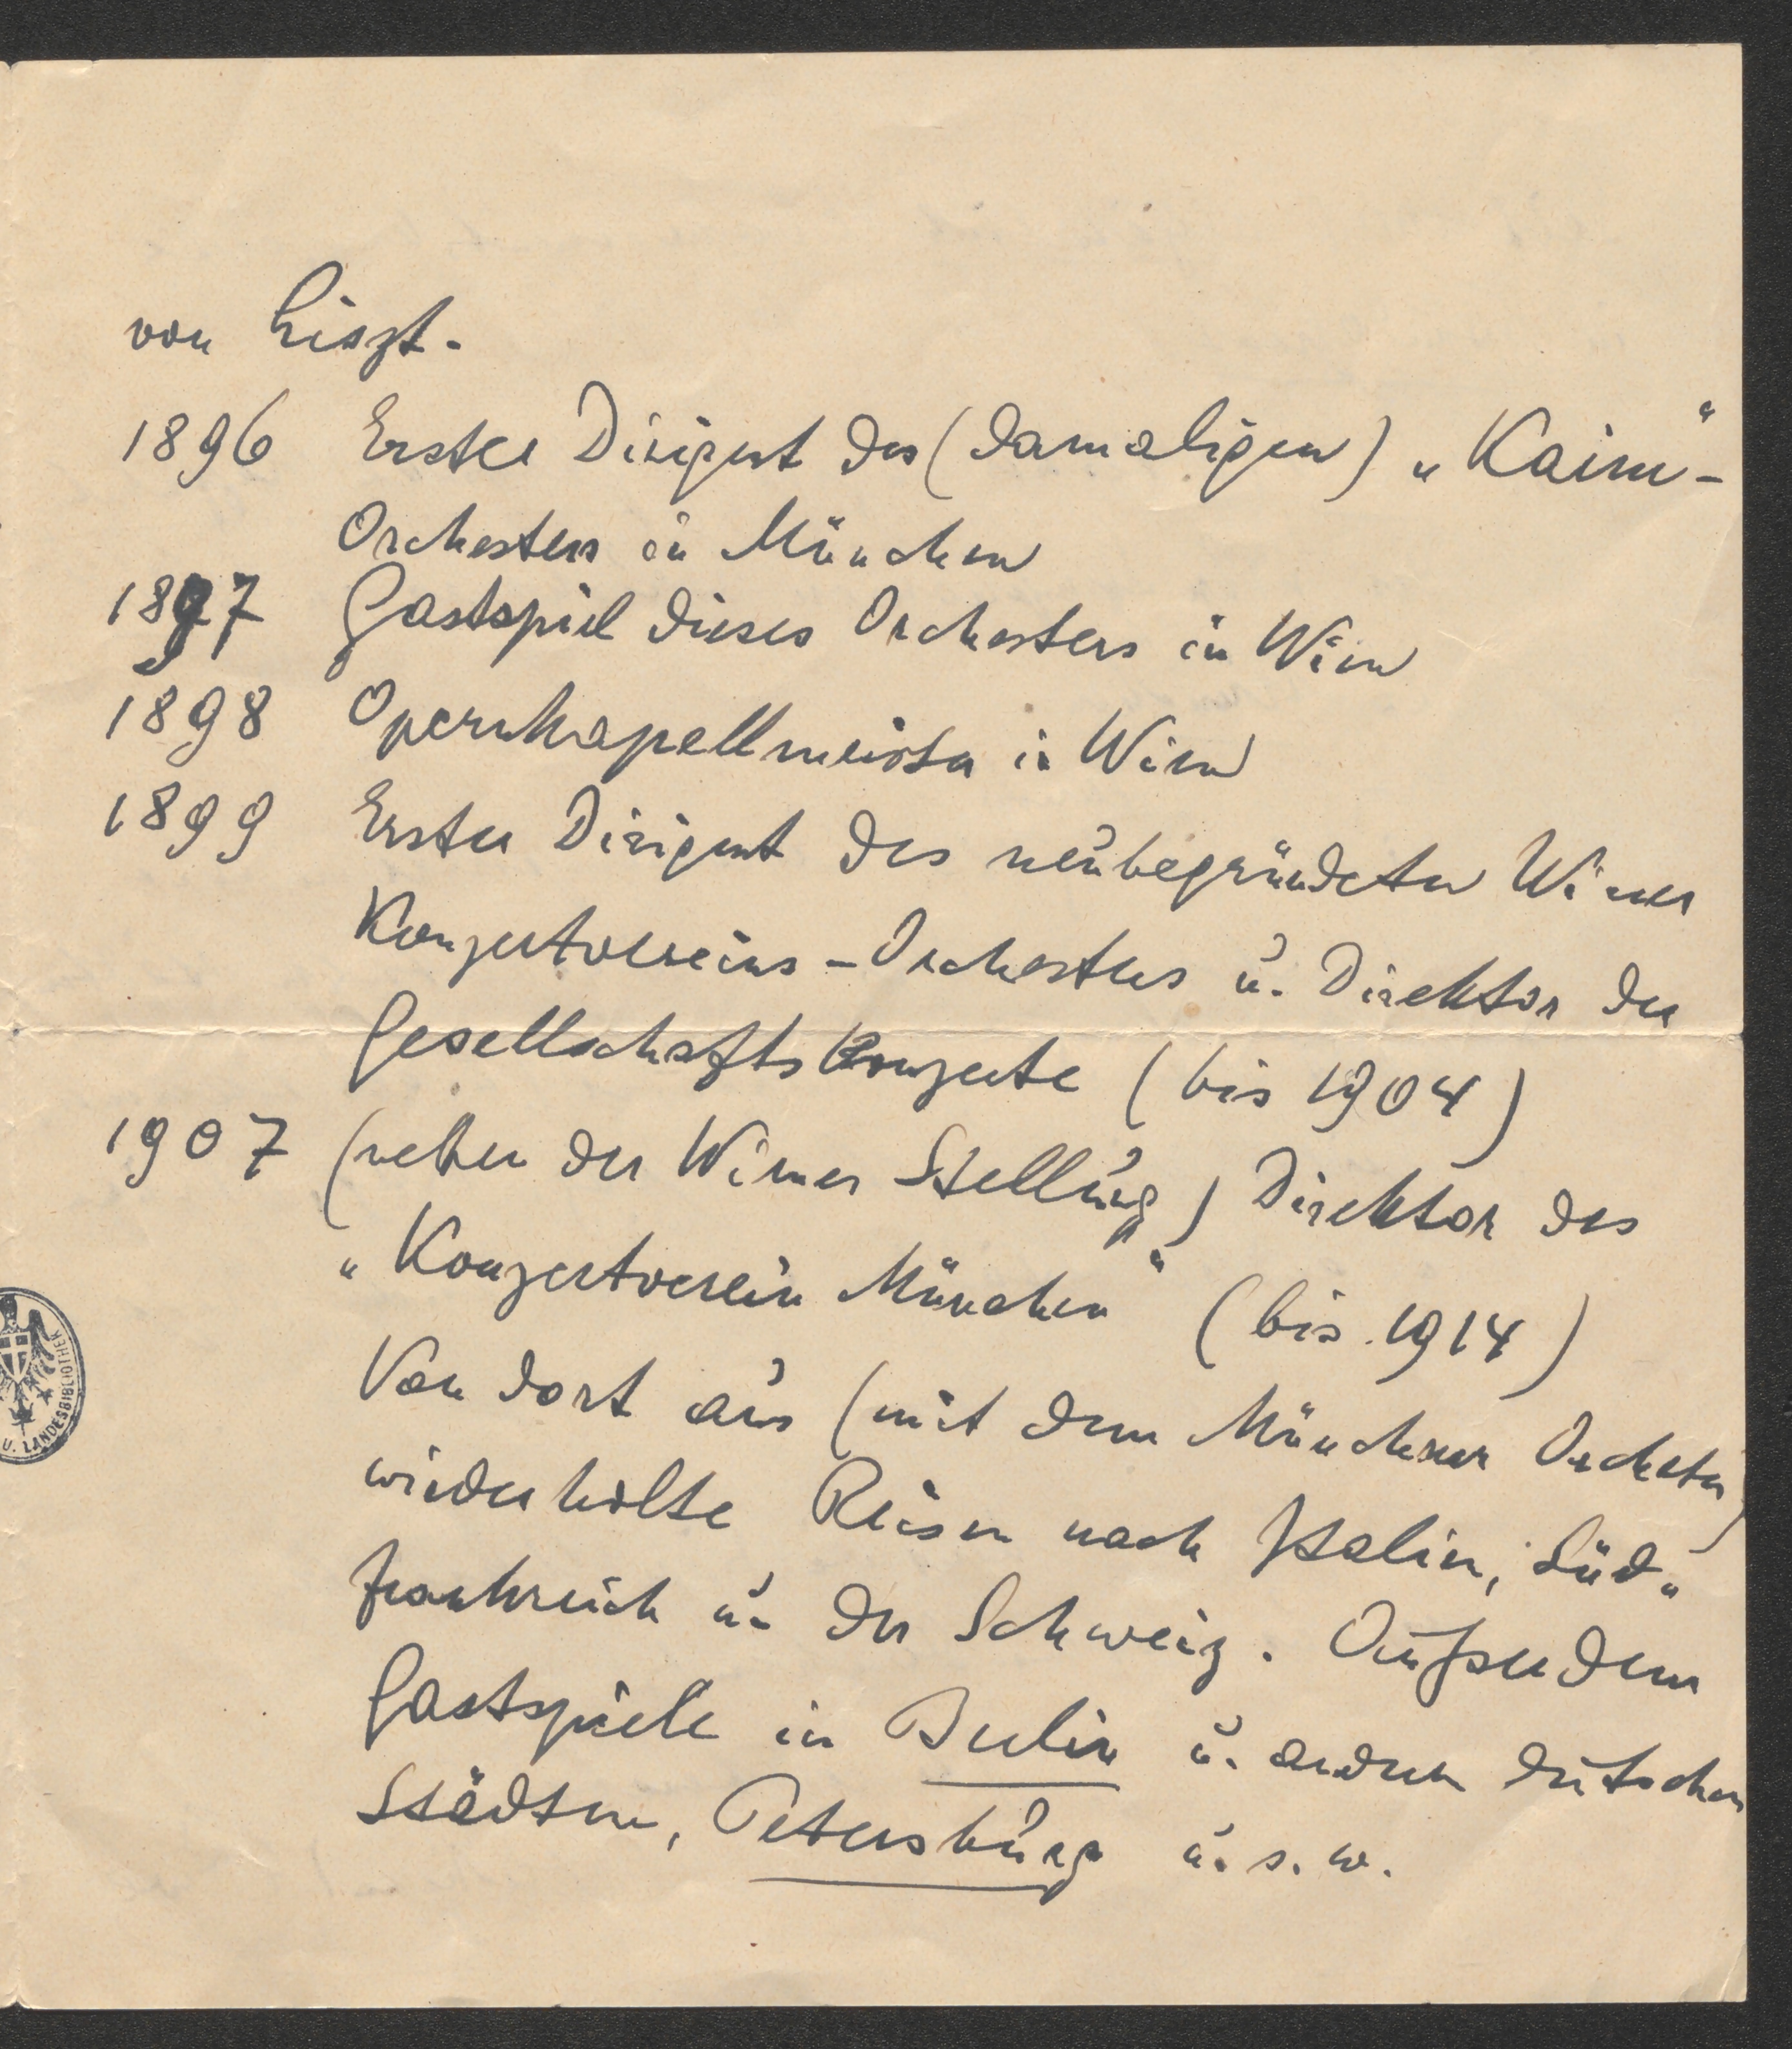 von Liszt.
1896 Erster Dirigent des (damaligen) „Kaim"-
Orchesters in München
1897 Gastspiel dieses Orchesters in Wien
1898 Opernkapellmeister in Wien
1899 Erster Dirigent des neubegründeten Wiener
Konzertvereins-Orchesters u. Direktor der
Gesellschaftskonzerte (bis 1904)
1907 (neben der Wiener Stellung) Direktor des
„Konzertverein München" (bis 1914)
Von dort aus (mit dem Münchner Orchester)
wiederholte Reisen nach Italien, Süd-
frankreich u. der Schweiz. Außerdem
Gastspiele in Berlin u. andren deutschen
Städten, Petersburg u. s. w.
U. LANDESBIBLIOTHEK